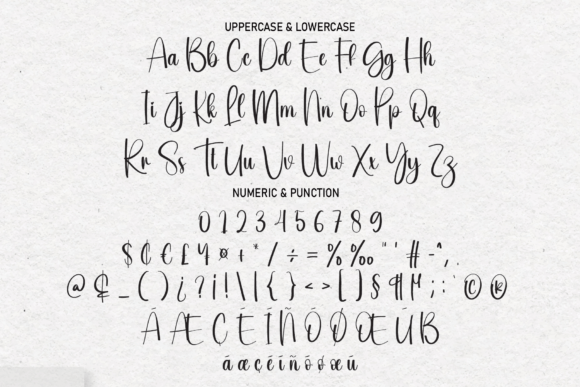 UPPERCASE & LOWERCASE
Aa Bb Cc Dd Ee Ff Gg Hh
Ii Jj Kk Ll Mm Nn Oo Pp Qq
Rr Ss Tt Uu Vv Ww Xx Yy Zz
NUMERIC & PUNCTION
0 1 2 3 4 5 6 7 8 9
$ ₵ € £ ¥ ¤ + * / ÷ = % ‰ " ' # - ^ , .
@ ₵ _ ( ) ¿ ? ¡ ! \ | { } < > [ ] § ¶ µ ; : ` © ®
Á Æ Ç É Í Ñ Ó Ø Œ Ú ß
á æ ç é í ñ ó ø œ ú